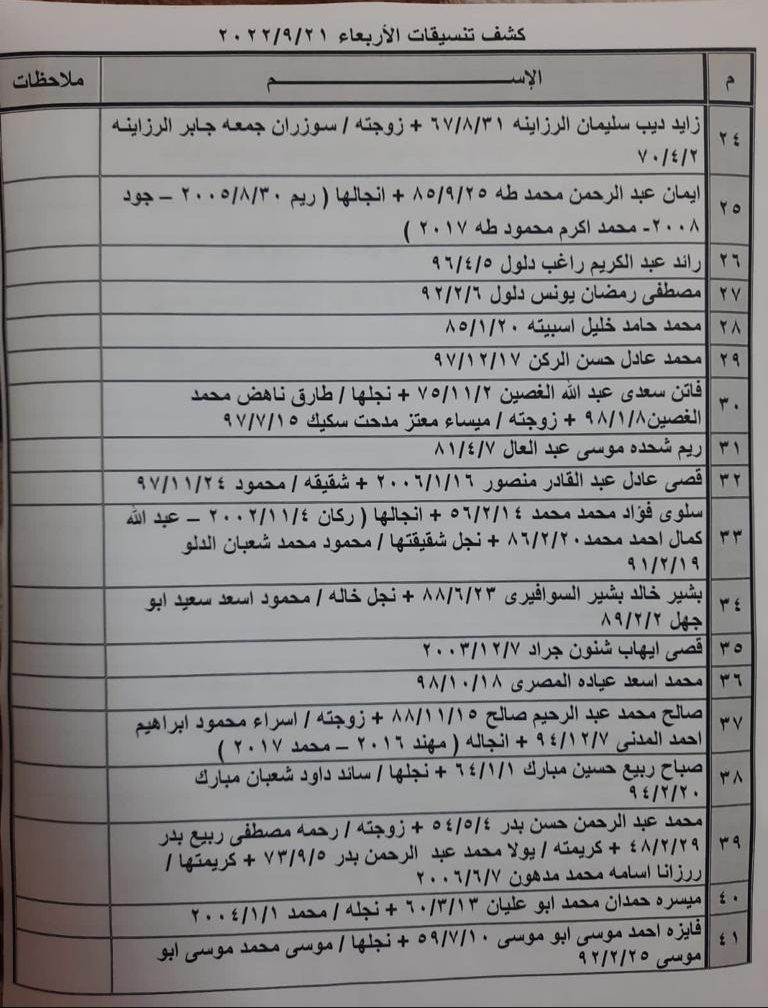 كشف تنسيقات الأربعاء ٢٠٢٢/٩/٢١
م الإســـــــــــــــــــــم ملاحظات
٢٤ زايد ديب سليمان الرزاينه ٦٧/٨/٣١ + زوجته / سوزران جمعه جابر الرزاينه
٧٠/٤/٢
٢٥ ايمان عبد الرحمن محمد طه ٨٥/٩/٢٥ + انجالها ( ريم ٢٠٠٥/٨/٣٠ – جود
٢٠٠٨- محمد اكرم محمود طه ٢٠١٧ )
٢٦ رائد عبد الكريم راغب دلول ٩٦/٤/٥
٢٧ مصطفى رمضان يونس دلول ٩٢/٢/٦
٢٨ محمد حامد خليل اسبيته ٨٥/١/٢٠
٢٩ محمد عادل حسن الركن ٩٧/١٢/١٧
٣٠ فاتن سعدى عبد الله الغصين ٧٥/١١/٢ + نجلها / طارق ناهض محمد
الغصين٩٨/١/٨ + زوجته / ميساء معتز مدحت سكيك ٩٧/٧/١٥
٣١ ريم شحده موسى عبد العال ٨١/٤/٧
٣٢ قصى عادل عبد القادر منصور ٢٠٠٦/١/١٦ + شقيقه / محمود ٩٧/١١/٢٤
٣٣ سلوى فؤاد محمد محمد ٥٦/٢/١٤ + انجالها ( ركان ٢٠٠٢/١١/٤ – عبد الله
كمال احمد محمد٨٦/٢/٢٠ + نجل شقيقتها / محمود محمد شعبان الدلو
٩١/٢/١٩
٣٤ بشير خالد بشير السوافيرى ٨٨/٦/٢٣ + نجل خاله / محمود اسعد سعيد ابو
جهل ٨٩/٢/٢
٣٥ قصى ايهاب شنون جراد ٢٠٠٣/١٢/٧
٣٦ محمد اسعد عياده المصرى ٩٨/١٠/١٨
٣٧ صالح محمد عبد الرحيم صالح ٨٨/١١/١٥ + زوجته / اسراء محمود ابراهيم
احمد المدنى ٩٤/١٢/٧ + انجاله ( مهند ٢٠١٦ – محمد ٢٠١٧ )
٣٨ صباح ربيع حسين مبارك ٦٤/١/١ + نجلها / سائد داود شعبان مبارك
٩٤/٢/٢٠
٣٩ محمد عبد الرحمن حسن بدر ٥٤/٥/٤ + زوجته / رحمه مصطفى ربيع بدر
٤٨/٢/٢٩ + كريمته / يولا محمد عبد الرحمن بدر ٧٣/٩/٥ + كريمتها /
ررزانا اسامه محمد مدهون ٢٠٠٦/٦/٧
٤٠ ميسره حمدان محمد ابو عليان ٦٠/٣/١٣ + نجله / محمد ٢٠٠٤/١/١
٤١ فايزه احمد موسى ابو موسى ٥٩/٧/١٠ + نجلها / موسى محمد موسى ابو
موسى ٩٢/٢/٢٥